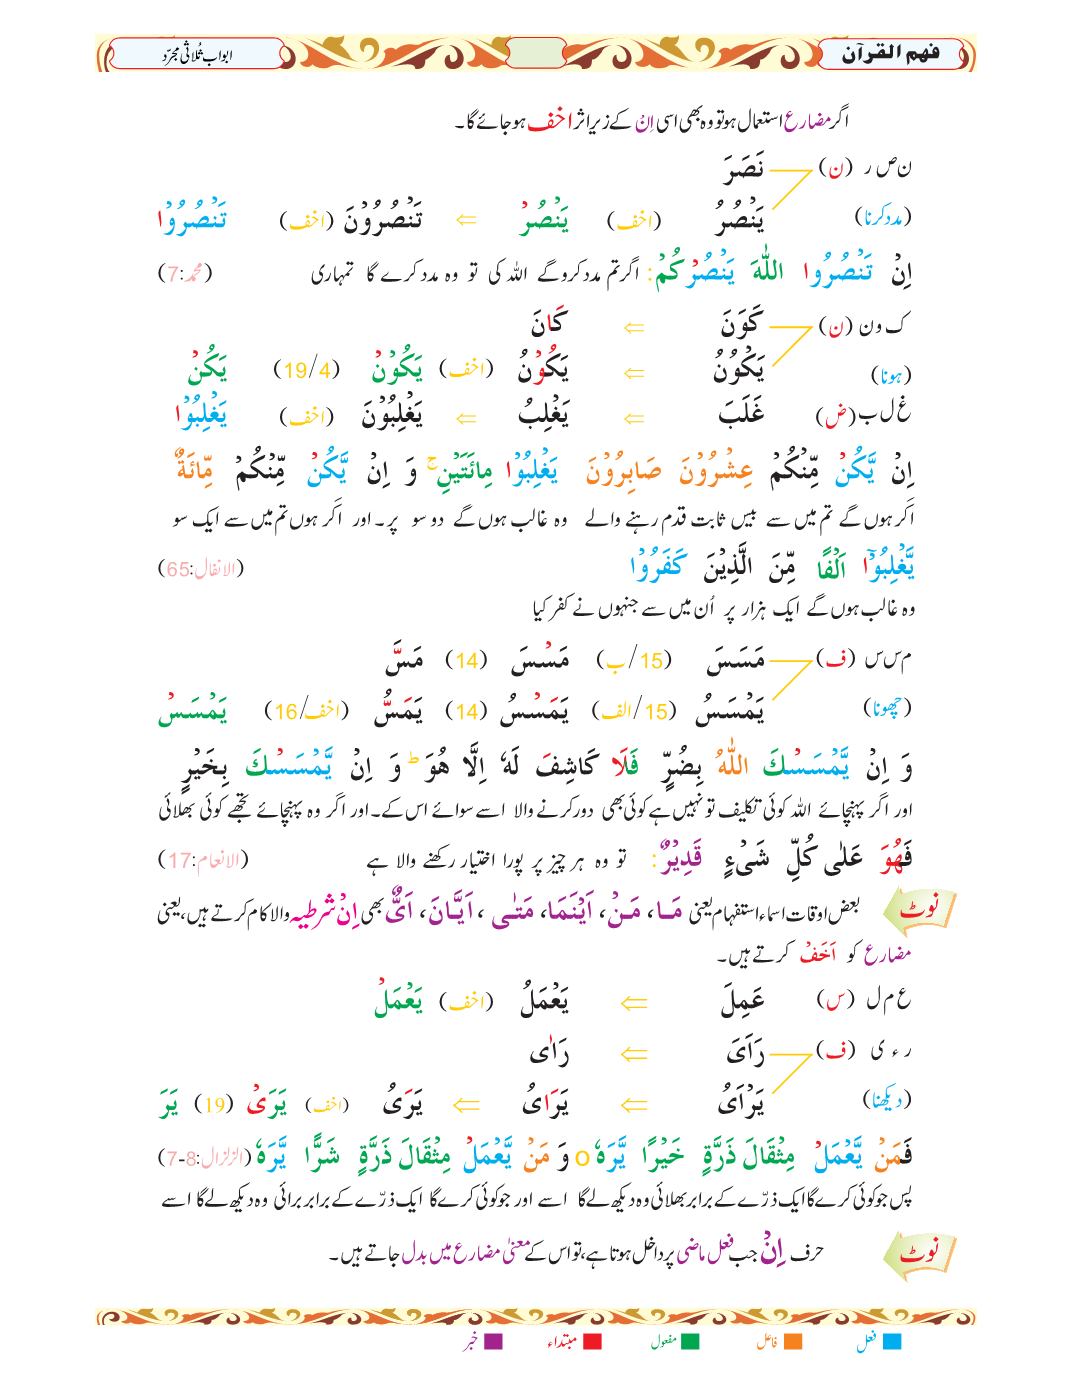 فہم القرآن
ابواب ثُلاثی مجرّد
اگر مضارع استعمال ہو تو وہ بھی اسی اِنْ کے زیرِ اثر اخف ہو جائے گا۔
ن ص ر (ن) نَصَرَ
(مدد کرنا) يَنْصُرُ (اخف) يَنْصُرْ ⇐ تَنْصُرُوْنَ (اخف) تَنْصُرُوْا
اِنْ تَنْصُرُوا اللّٰهَ يَنْصُرْكُمْ : اگر تم مدد کرو گے اللہ کی تو وہ مدد کرے گا تمہاری (محمد:7)
ک و ن (ن) كَوَنَ ⇐ كَانَ
(ہونا) يَكْوُنُ ⇐ يَكُوْنُ (اخف) يَكُوْنْ (19/4) يَكُنْ
غ ل ب (ض) غَلَبَ ⇐ يَغْلِبُ ⇐ يَغْلِبُوْنَ (اخف) يَغْلِبُوْا
اِنْ يَّكُنْ مِّنْكُمْ عِشْرُوْنَ صَابِرُوْنَ يَغْلِبُوْا مِائَتَيْنِ ۚ وَ اِنْ يَّكُنْ مِّنْكُمْ مِّائَةٌ
اگر ہوں گے تم میں سے بیس ثابت قدم رہنے والے وہ غالب ہوں گے دو سو پر۔ اور اگر ہوں تم میں سے ایک سو
يَّغْلِبُوْۤا اَلْفًا مِّنَ الَّذِيْنَ كَفَرُوْا (الانفال:65)
وہ غالب ہوں گے ایک ہزار پر اُن میں سے جنہوں نے کفر کیا
م س س (ف) مَسَسَ (15/ب) مَسْسَ (14) مَسَّ
(چھونا) يَمْسَسُ (15/الف) يَمَسْسُ (14) يَمَسُّ (اخف/16) يَمْسَسْ
وَ اِنْ يَّمْسَسْكَ اللّٰهُ بِضُرٍّ فَلَا كَاشِفَ لَهٗ اِلَّا هُوَ ؕ وَ اِنْ يَّمْسَسْكَ بِخَيْرٍ
اور اگر پہنچائے اللہ کوئی تکلیف تو نہیں ہے کوئی بھی دور کرنے والا اسے سوائے اس کے۔ اور اگر وہ پہنچائے تجھے کوئی بھلائی
فَهُوَ عَلٰى كُلِّ شَىْءٍ قَدِيْرٌ : تو وہ ہر چیز پر پورا اختیار رکھنے والا ہے (الانعام:17)
نوٹ بعض اوقات اسماء استفہام یعنی مَا، مَنْ، اَيْنَمَا، مَتٰى، اَيَّانَ، اَىٌّ بھی اِنْ شرطیہ والا کام کرتے ہیں، یعنی
مضارع کو اَخَفْ کرتے ہیں۔
ع م ل (س) عَمِلَ ⇐ يَعْمَلُ (اخف) يَعْمَلْ
ر ء ی (ف) رَاَىَ ⇐ رَاٰى
(دیکھنا) يَرْاَىُ ⇐ يَرَاىُ ⇐ يَرَىُ (اخف) يَرَىْ (19) يَرَ
فَمَنْ يَّعْمَلْ مِثْقَالَ ذَرَّةٍ خَيْرًا يَّرَهٗ o وَ مَنْ يَّعْمَلْ مِثْقَالَ ذَرَّةٍ شَرًّا يَّرَهٗ (الزلزال:8-7)
پس جو کوئی کرے گا ایک ذرّے کے برابر بھلائی وہ دیکھ لے گا اسے اور جو کوئی کرے گا ایک ذرّے کے برابر برائی وہ دیکھ لے گا اسے
نوٹ حرف اِنْ جب فعل ماضی پر داخل ہوتا ہے، تو اس کے معنیٰ مضارع میں بدل جاتے ہیں۔
فعل فاعل مفعول مبتداء خبر